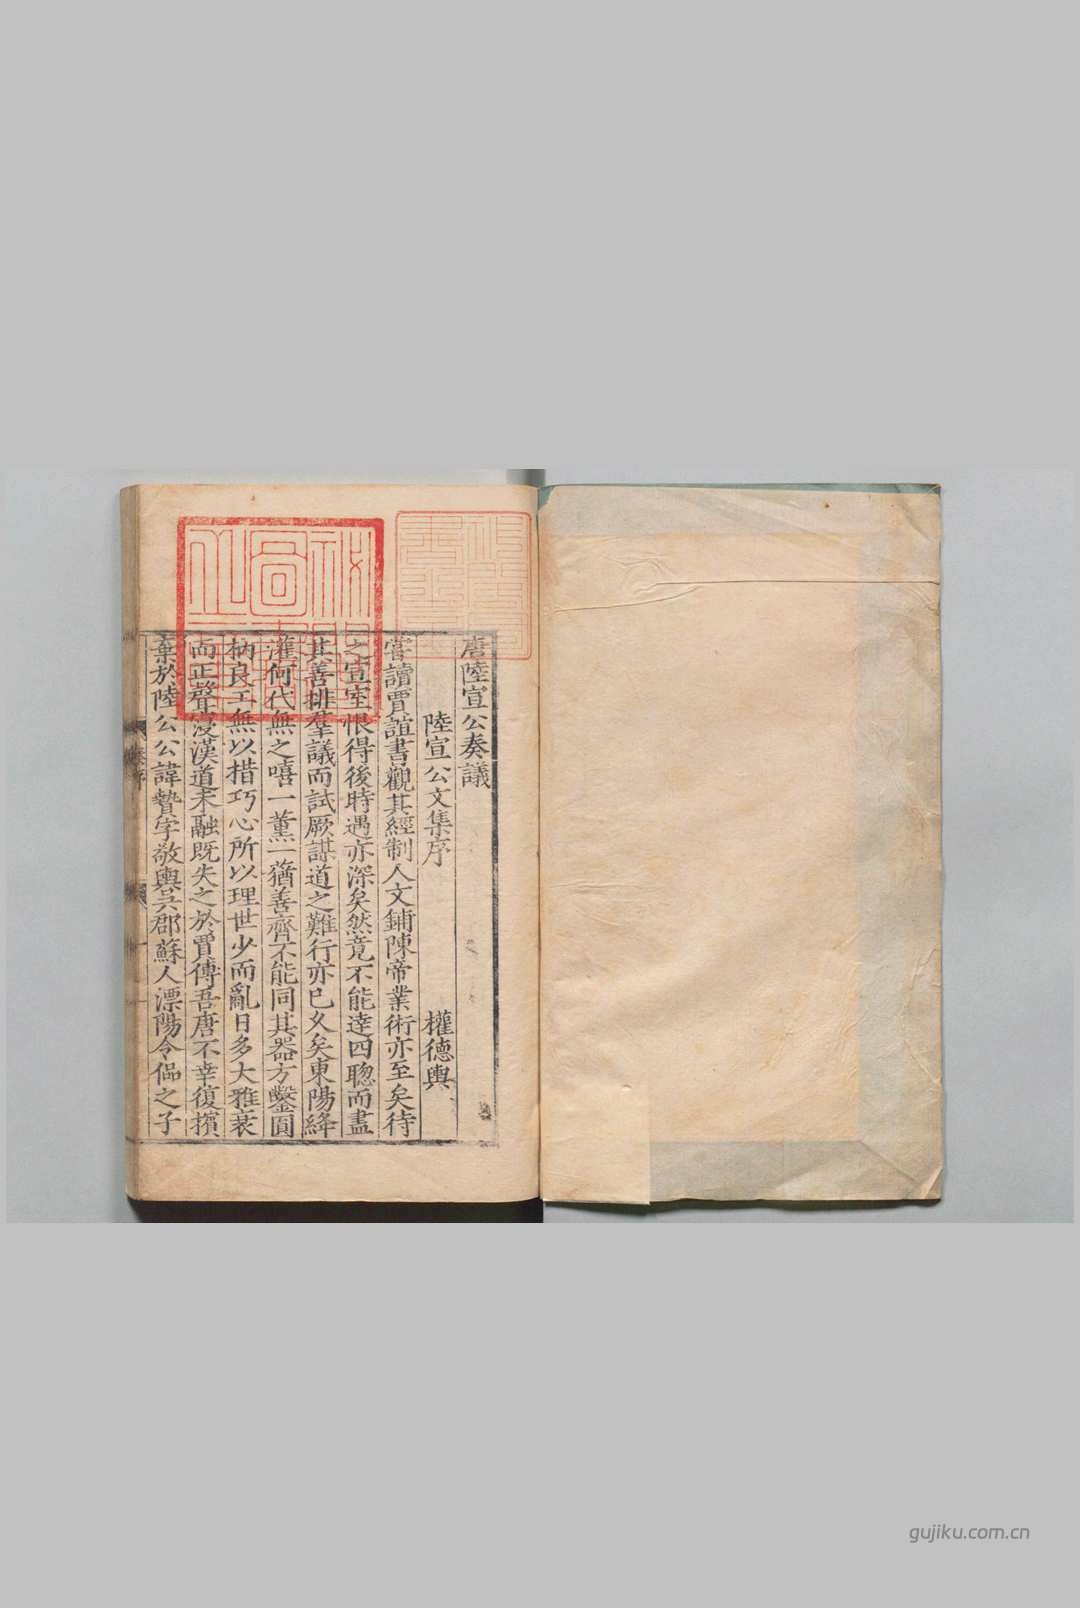 唐陸宣公奏議
陸宣公文集序
權德輿
嘗讀賈誼書觀其經制人文鋪陳帝業術亦至矣待
之宣室恨得後時遇亦深矣然竟不能達四聰而盡
其善排羣議而試厥謀道之難行亦已久矣東陽絳
灌何代無之嘻一薰一蕕善齊不能同其器方鑿圓
枘良工無以措巧心所以理世少而亂日多大雅衰
而正聲寖漢道未融既失之於賈傅吾唐不幸復擯
棄於陸公公諱贄字敬輿吳郡蘇人漂陽令偘之子
gujiku.com.cn